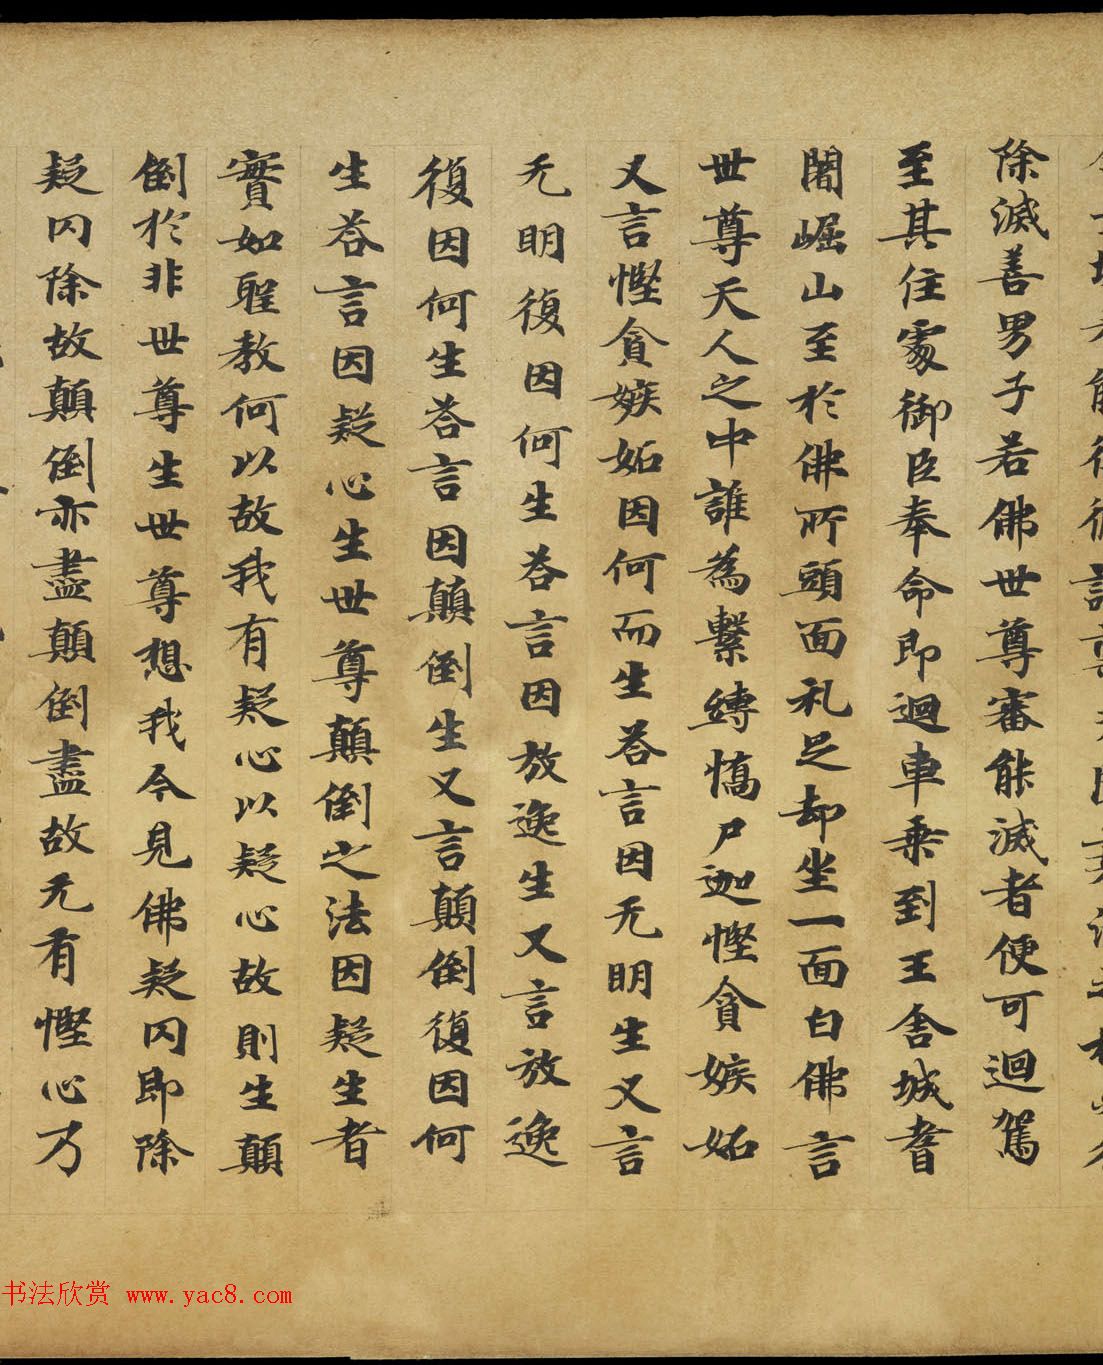 除滅善男子若佛世尊審能滅者便可迴駕
至其住處御臣奉命即迴車乘到王舍城耆
闍崛山至於佛所頭面礼足却坐一面白佛言
世尊天人之中誰為繫縛憍尸迦慳貪嫉妬
又言慳貪嫉妬因何而生荅言因无明生又言
无明復因何生荅言因放逸生又言放逸
復因何生荅言因顛倒生又言顛倒復因何
生荅言因疑心生世尊顛倒之法因疑生者
實如聖教何以故我有疑心以疑心故則生顛
倒於非世尊生世尊想我今見佛疑网即除
疑网除故顛倒亦盡顛倒盡故无有慳心乃
书法欣赏 www.yac8.com